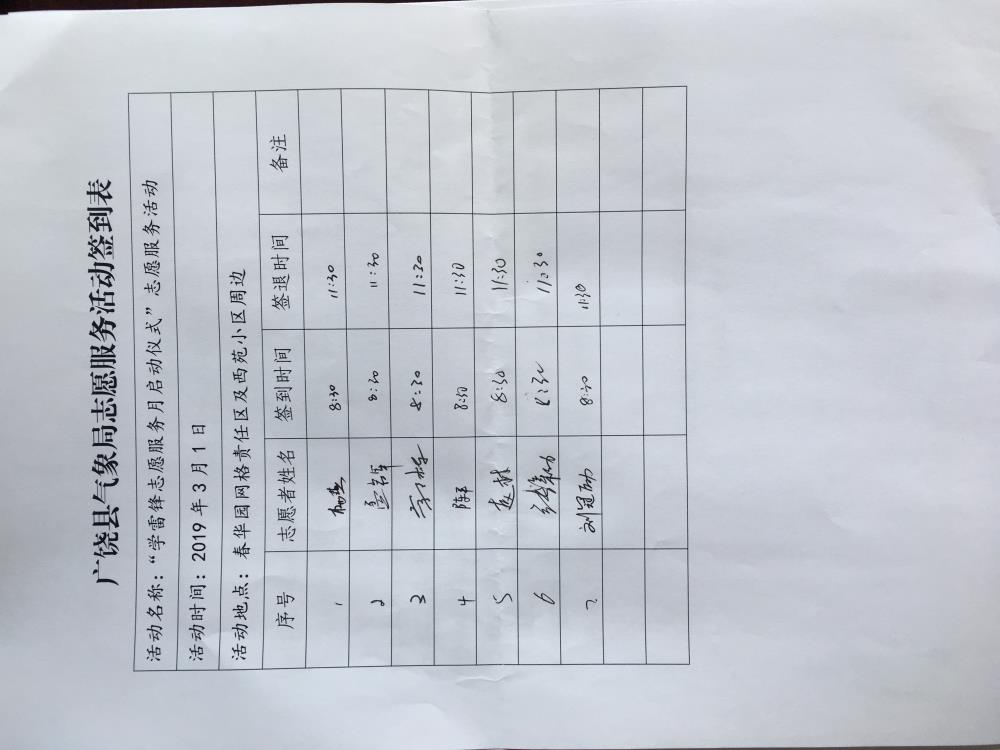 广饶县气象局志愿服务活动签到表
活动名称：“学雷锋志愿服务月启动仪式”志愿服务活动
活动时间：2019 年 3 月 1 日
活动地点：春华园网格责任区及西苑小区周边
序号 志愿者姓名 签到时间 签退时间 备注
1 8:30 11:30
2 8:30 11:30
3 8:30 11:30
4 8:30 11:30
5 8:30 11:30
6 8:30 11:30
7 8:30 11:30